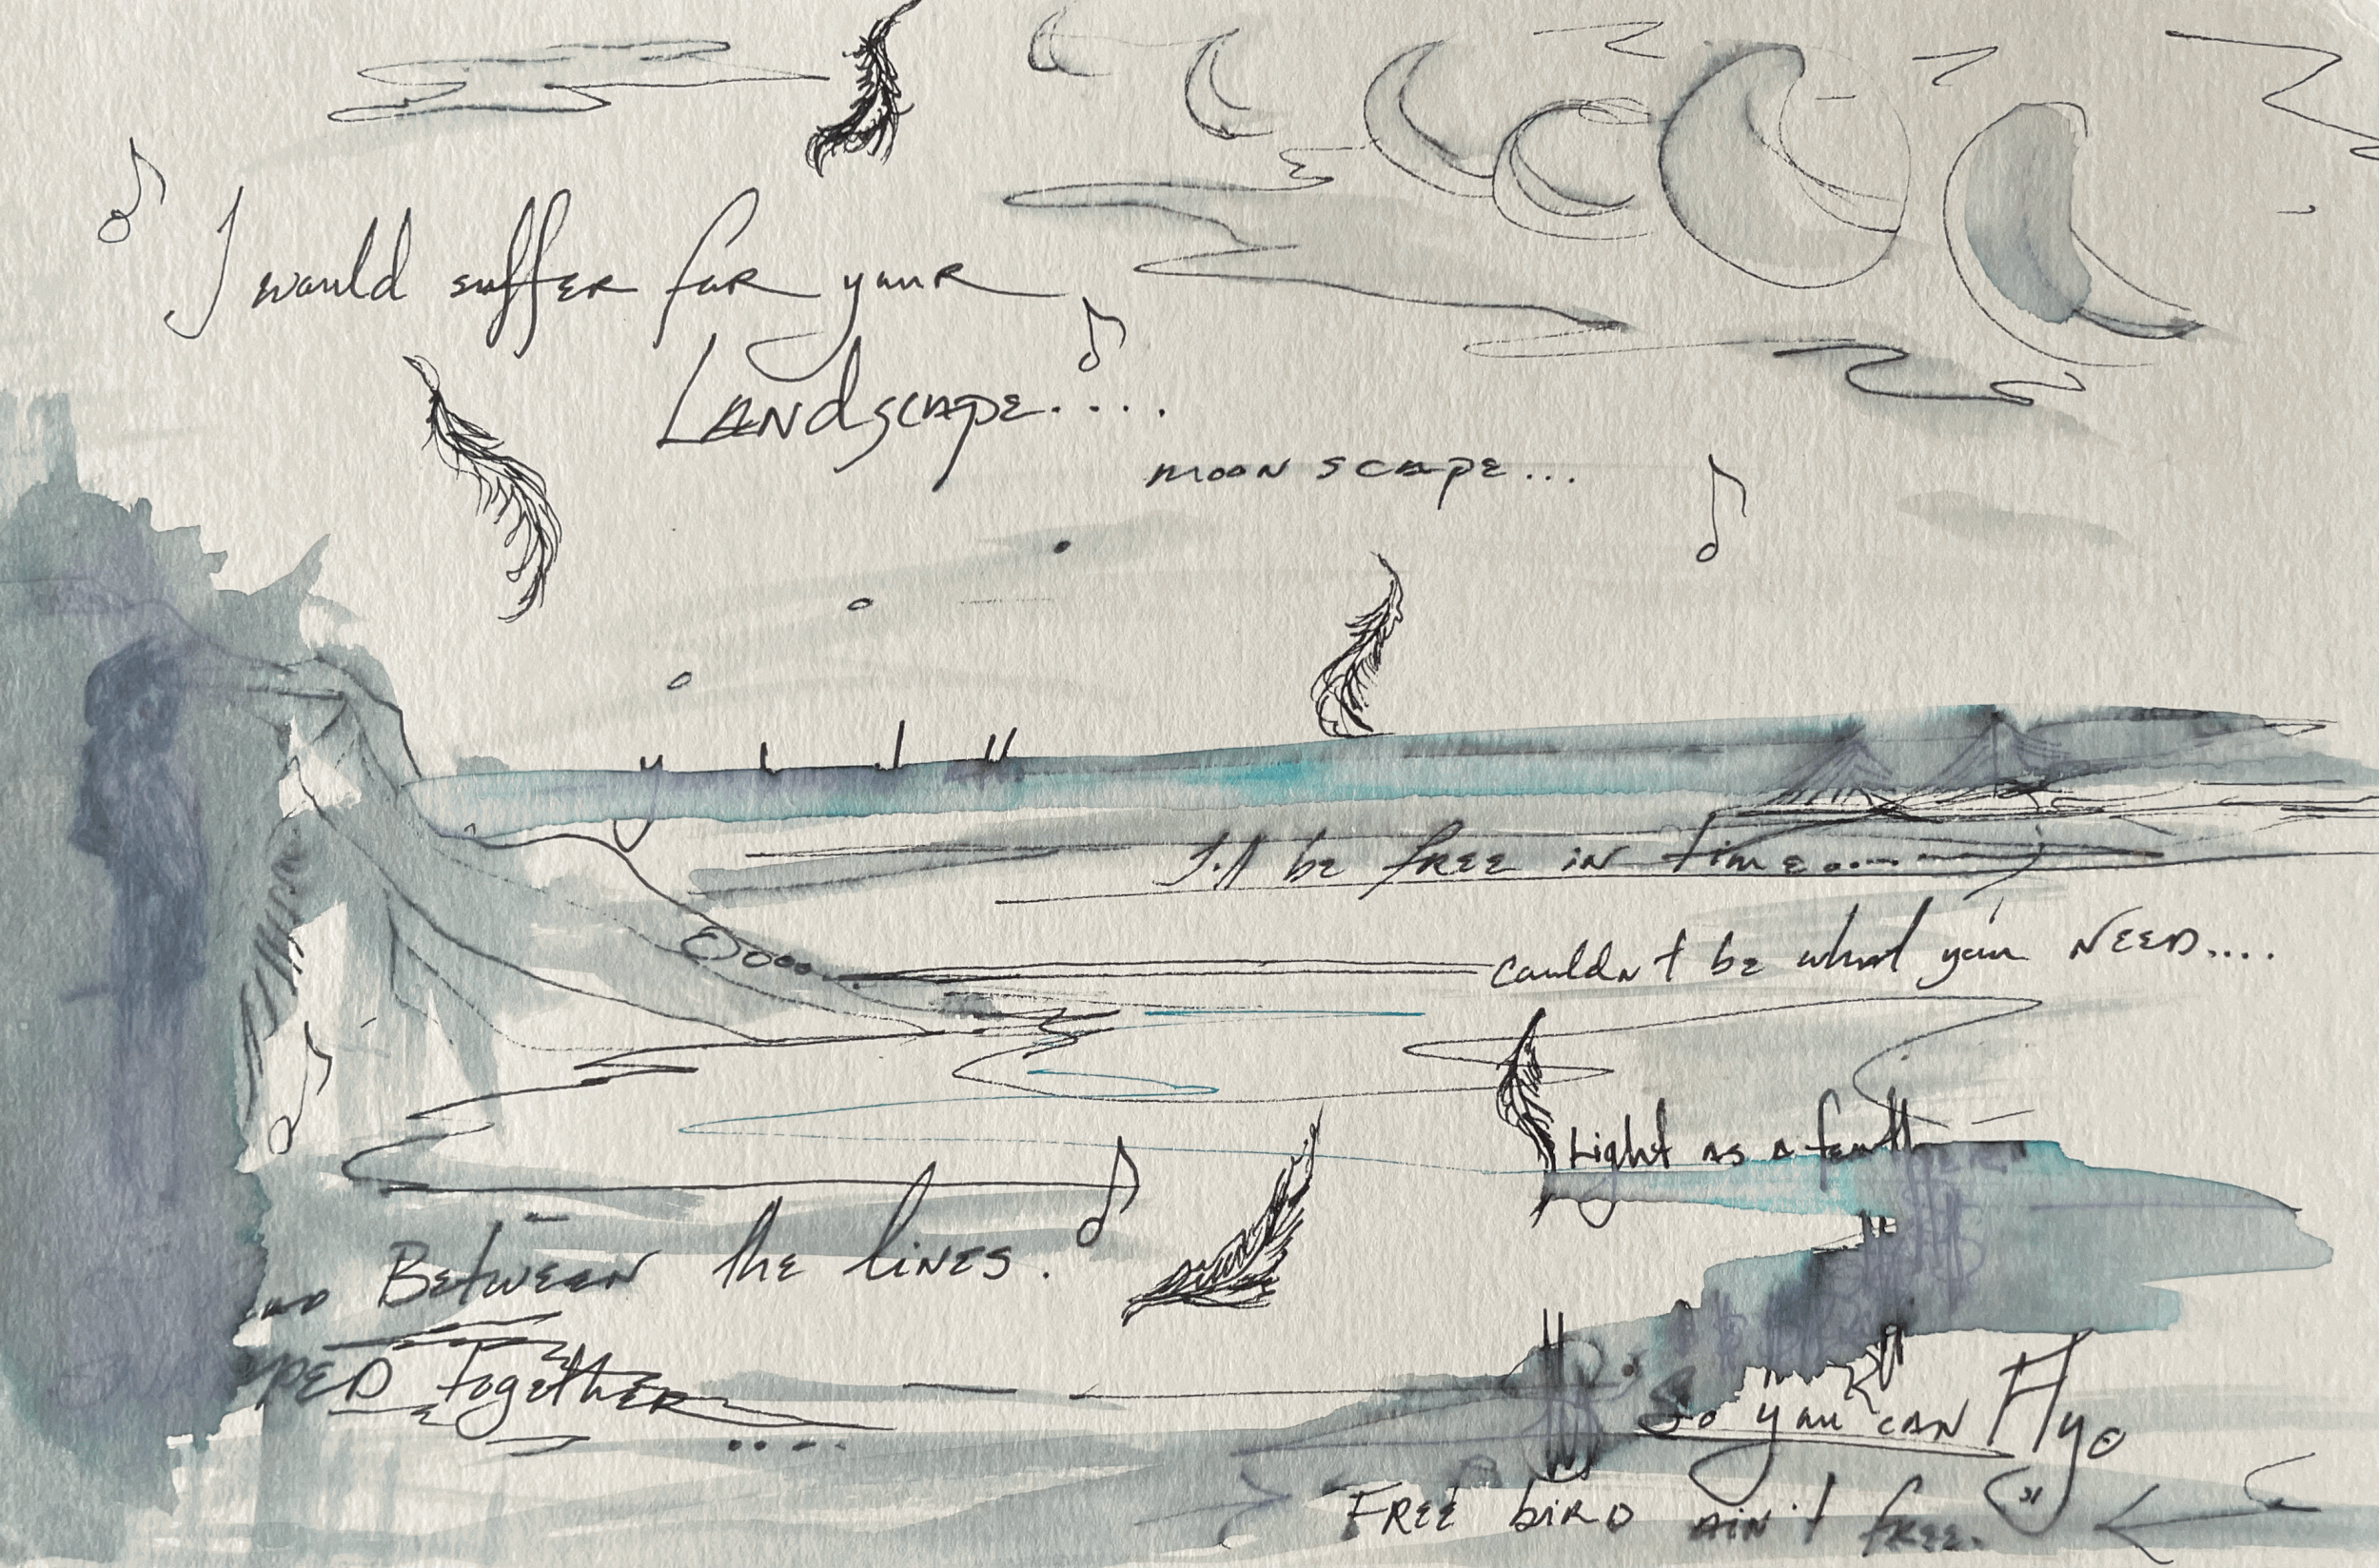 I would suffer for your
Landscape....
moon scape...
I'll be free in time....
couldn't be what you NEED....
Light as a feather
Between the lines.
together
....
So you can Fly
Free bird ain't free.